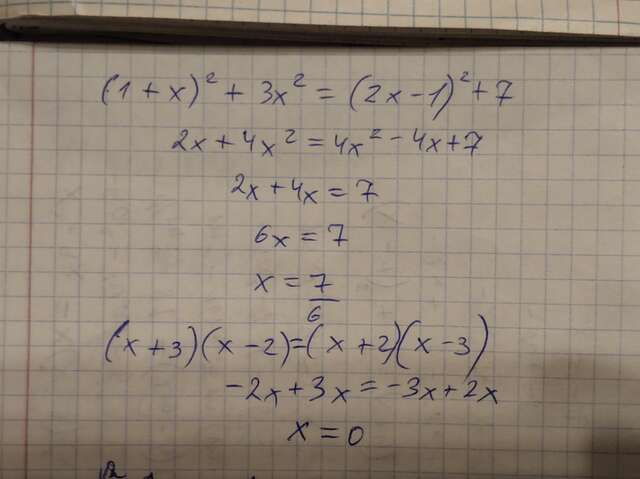 (1 + x)² + 3x² = (2x - 1)² + 7
2x + 4x² = 4x² - 4x + 7
2x + 4x = 7
6x = 7
x = 7/6
(x + 3)(x - 2) = (x + 2)(x - 3)
-2x + 3x = -3x + 2x
x = 0